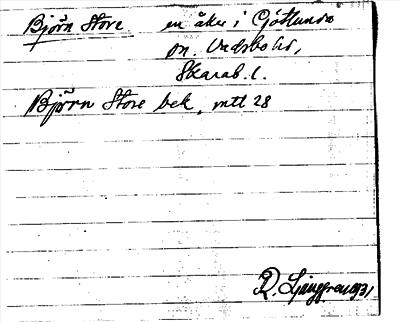 Björn Store en åker i Götlunda
sn. Vadsbo hd,
Skarab. l.
Björn Store bek, mtt 28
R. Ljunggren 1931